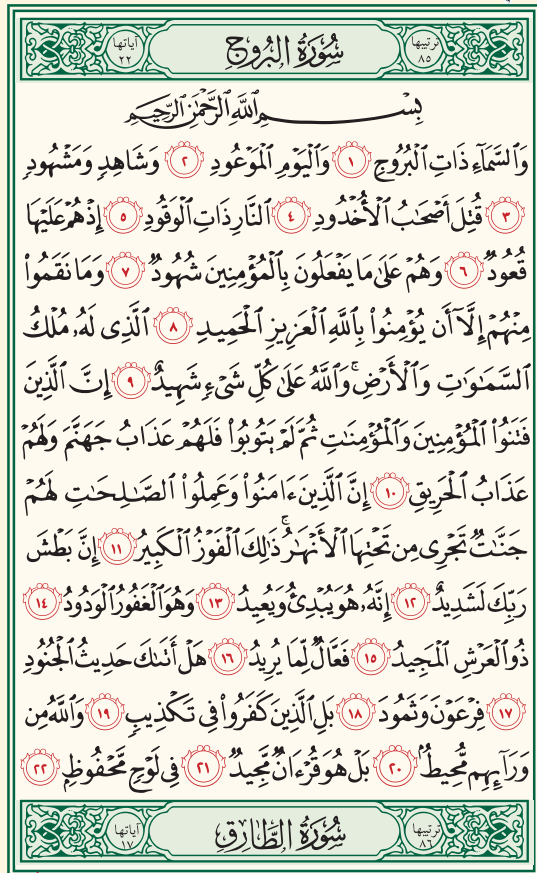 ترتيبها ٨٥ سُورَةُ الْبُرُوجِ آياتها ٢٢
بِسْمِ اللَّهِ الرَّحْمَٰنِ الرَّحِيمِ
وَالسَّمَاءِ ذَاتِ الْبُرُوجِ ١ وَالْيَوْمِ الْمَوْعُودِ ٢ وَشَاهِدٍ وَمَشْهُودٍ
٣ قُتِلَ أَصْحَٰبُ الْأُخْدُودِ ٤ النَّارِ ذَاتِ الْوَقُودِ ٥ إِذْ هُمْ عَلَيْهَا
قُعُودٌ ٦ وَهُمْ عَلَىٰ مَا يَفْعَلُونَ بِالْمُؤْمِنِينَ شُهُودٌ ٧ وَمَا نَقَمُوا۟
مِنْهُمْ إِلَّآ أَن يُؤْمِنُوا۟ بِاللَّهِ الْعَزِيزِ الْحَمِيدِ ٨ الَّذِى لَهُۥ مُلْكُ
السَّمَٰوَٰتِ وَالْأَرْضِ ۚ وَاللَّهُ عَلَىٰ كُلِّ شَىْءٍ شَهِيدٌ ٩ إِنَّ الَّذِينَ
فَتَنُوا۟ الْمُؤْمِنِينَ وَالْمُؤْمِنَٰتِ ثُمَّ لَمْ يَتُوبُوا۟ فَلَهُمْ عَذَابُ جَهَنَّمَ وَلَهُمْ
عَذَابُ الْحَرِيقِ ١٠ إِنَّ الَّذِينَ ءَامَنُوا۟ وَعَمِلُوا۟ الصَّٰلِحَٰتِ لَهُمْ
جَنَّٰتٌ تَجْرِى مِن تَحْتِهَا الْأَنْهَٰرُ ۚ ذَٰلِكَ الْفَوْزُ الْكَبِيرُ ١١ إِنَّ بَطْشَ
رَبِّكَ لَشَدِيدٌ ١٢ إِنَّهُۥ هُوَ يُبْدِئُ وَيُعِيدُ ١٣ وَهُوَ الْغَفُورُ الْوَدُودُ ١٤
ذُو الْعَرْشِ الْمَجِيدُ ١٥ فَعَّالٌ لِّمَا يُرِيدُ ١٦ هَلْ أَتَىٰكَ حَدِيثُ الْجُنُودِ
١٧ فِرْعَوْنَ وَثَمُودَ ١٨ بَلِ الَّذِينَ كَفَرُوا۟ فِى تَكْذِيبٍ ١٩ وَاللَّهُ مِن
وَرَآئِهِم مُّحِيطٌۢ ٢٠ بَلْ هُوَ قُرْءَانٌ مَّجِيدٌ ٢١ فِى لَوْحٍ مَّحْفُوظٍۭ ٢٢
ترتيبها ٨٦ سُورَةُ الطَّارِقِ آياتها ١٧